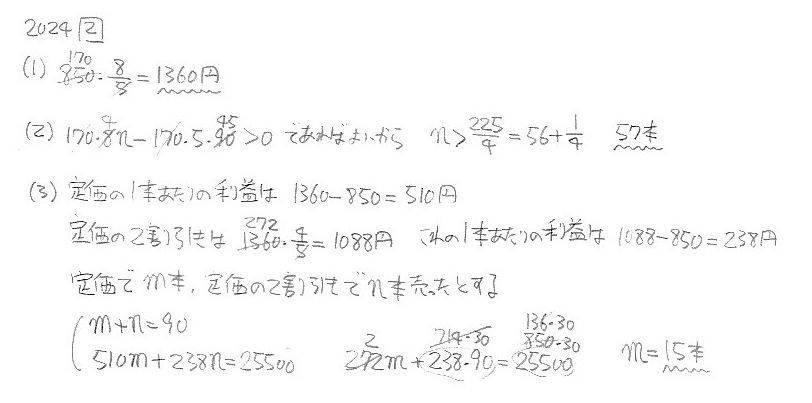 2024 2
(1) 170
850・8/5=1360円
(2) 170・8n-170・5・90>0 であればよいから n>225/4=56+1/4 57本
4 45
(3) 定価の1本あたりの利益は 1360-850=510円
272
定価の2割引きは 1360・4/5=1088円 これの1本あたりの利益は 1088-850=238円
定価でm本,定価の2割引きでn本売ったとする
m+n=90
136・30
2 214・30 850・30
510m+238n=25500 272m+238・90=25500 m=15本